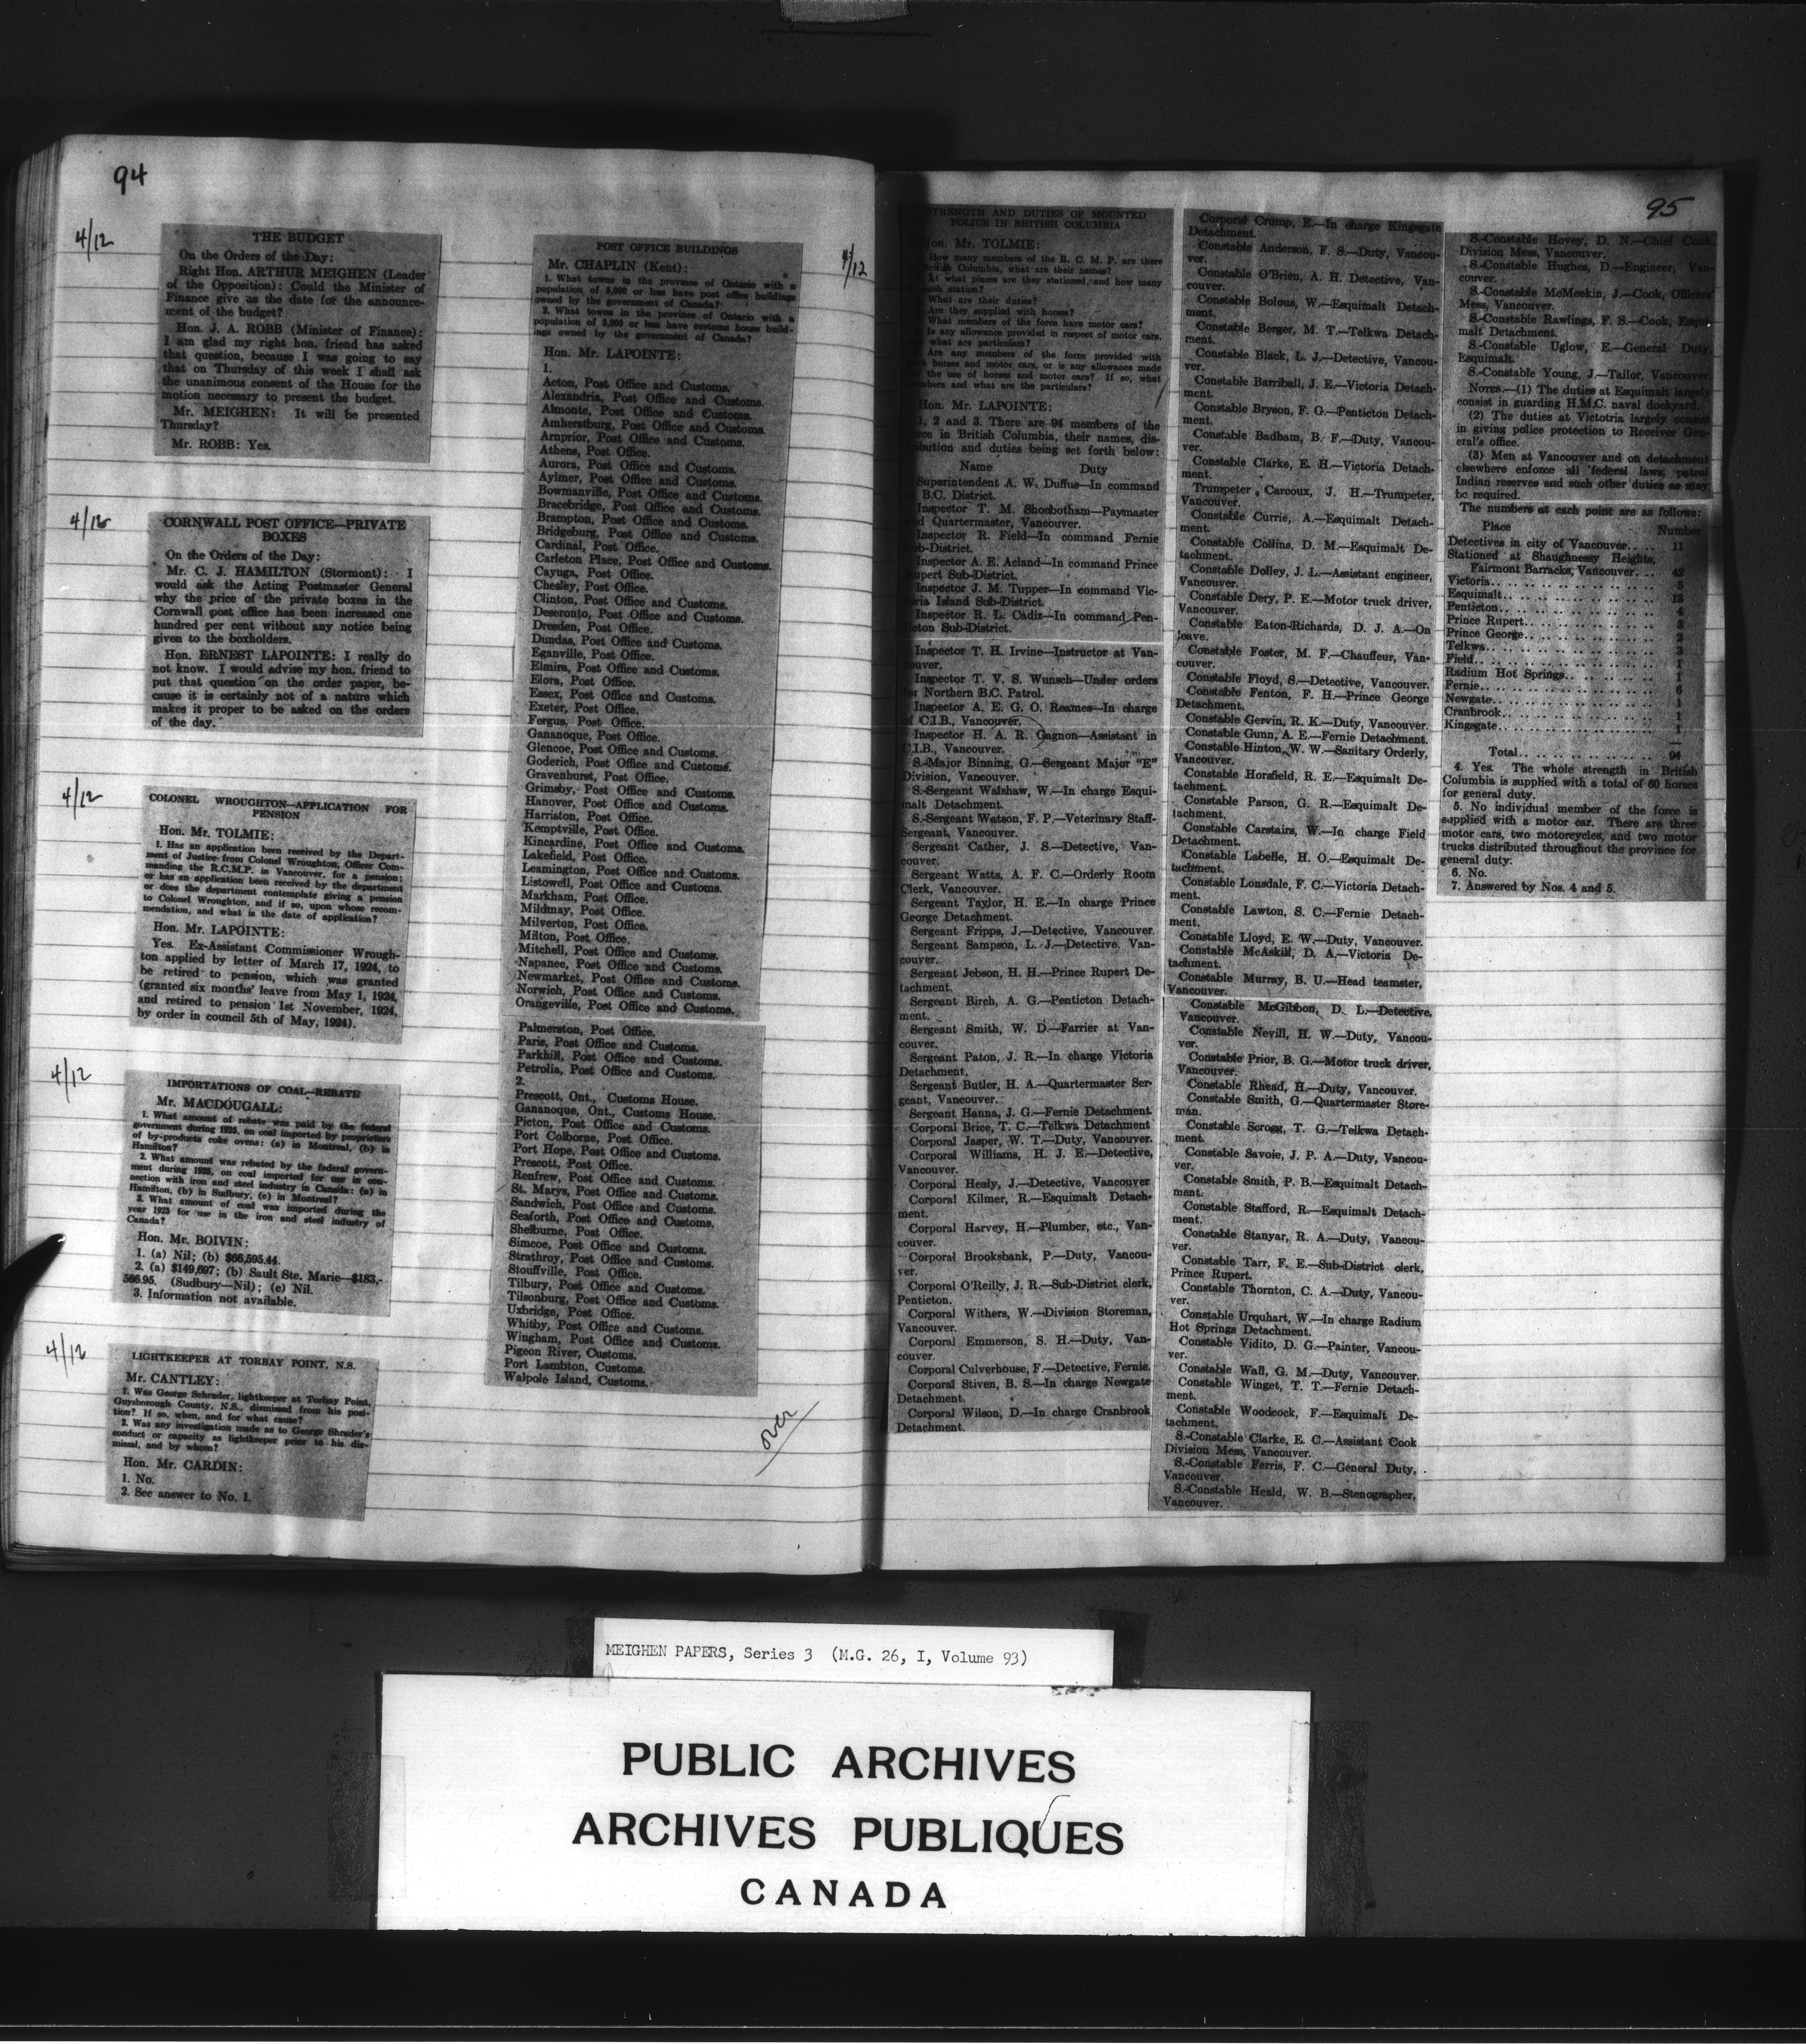 94
4/12
THE BUDGET
On the Orders of the Day:
Right Hon. ARTHUR MEIGHEN (Leader
of the Opposition): Could the Minister of
Finance give us the date for the announce-
ment of the budget?
Hon. J. A. ROBB (Minister of Finance):
I am glad my right hon. friend has asked
that question, because I was going to say
that on Thursday of this week I shall ask
the unanimous consent of the House for the
motion necessary to present the budget.
Mr. MEIGHEN: It will be presented
Thursday?
Mr. ROBB: Yes.
4/12
CORNWALL POST OFFICE—PRIVATE
BOXES
On the Orders of the Day:
Mr. C. J. HAMILTON (Stormont): I
would ask the Acting Postmaster General
why the price of the private boxes in the
Cornwall post office has been increased one
hundred per cent without any notice being
given to the boxholders.
Hon. ERNEST LAPOINTE: I really do
not know. I would advise my hon. friend to
put that question on the order paper, be-
cause it is certainly not of a nature which
makes it proper to be asked on the orders
of the day.
4/12
COLONEL WROUGHTON—APPLICATION FOR
PENSION
Hon. Mr. TOLMIE:
1. Has an application been received by the Depart-
ment of Justice from Colonel Wroughton, Officer Com-
manding the R.C.M.P. in Vancouver, for a pension;
or has an application been received by the department
or does the department contemplate giving a pension
to Colonel Wroughton, and if so, upon whose recom-
mendation, and what is the date of application?
Hon. Mr. LAPOINTE:
Yes. Ex-Assistant Commissioner Wrough-
ton applied by letter of March 17, 1924, to
be retired to pension, which was granted
(granted six months' leave from May 1, 1924,
and retired to pension 1st November, 1924,
by order in council 5th of May, 1924).
4/12
IMPORTATIONS OF COAL—REBATE
Mr. MACDOUGALL:
1. What amount of rebate was paid by the federal
government during 1925, on coal imported by proprietors
of by-products coke ovens: (a) in Montreal, (b) in
Hamilton?
2. What amount was rebated by the federal govern-
ment during 1925, on coal imported for use in con-
nection with iron and steel industry in Canada: (a) in
Hamilton, (b) in Sudbury, (c) in Montreal?
3. What amount of coal was imported during the
year 1925 for use in the iron and steel industry of
Canada?
Hon. Mr. BOIVIN:
1. (a) Nil; (b) $66,595.44.
2. (a) $149,697; (b) Sault Ste. Marie—$183,-
566.95. (Sudbury—Nil); (c) Nil.
3. Information not available.
4/12
LIGHTKEEPER AT TORBAY POINT, N.S.
Mr. CANTLEY:
1. Was George Schrader, lightkeeper at Torbay Point,
Guysborough County, N.S., dismissed from his posi-
tion? If so, when, and for what cause?
2. Was any investigation made as to George Shrader's
conduct or capacity as lightkeeper prior to his dis-
missal, and by whom?
Hon. Mr. CARDIN:
1. No.
2. See answer to No. 1.
4/12
POST OFFICE BUILDINGS
Mr. CHAPLIN (Kent):
1. What towns in the province of Ontario with a
population of 5,000 or less have post office buildings
owned by the government of Canada?
2. What towns in the province of Ontario with a
population of 5,000 or less have customs house build-
ings owned by the government of Canada?
Hon. Mr. LAPOINTE:
1.
Acton, Post Office and Customs.
Alexandria, Post Office and Customs.
Almonte, Post Office and Customs.
Amherstburg, Post Office and Customs.
Arnprior, Post Office and Customs.
Athens, Post Office.
Aurora, Post Office and Customs.
Aylmer, Post Office and Customs.
Bowmanville, Post Office and Customs.
Bracebridge, Post Office and Customs.
Brampton, Post Office and Customs.
Bridgeburg, Post Office and Customs.
Cardinal, Post Office.
Carleton Place, Post Office and Customs.
Cayuga, Post Office.
Chesley, Post Office.
Clinton, Post Office and Customs.
Deseronto, Post Office and Customs.
Dresden, Post Office.
Dundas, Post Office and Customs.
Eganville, Post Office.
Elmira, Post Office and Customs.
Elora, Post Office.
Essex, Post Office and Customs.
Exeter, Post Office.
Fergus, Post Office.
Gananoque, Post Office.
Glencoe, Post Office and Customs.
Goderich, Post Office and Customs.
Gravenhurst, Post Office.
Grimsby, Post Office and Customs.
Hanover, Post Office and Customs.
Harriston, Post Office.
Kemptville, Post Office.
Kincardine, Post Office and Customs.
Lakefield, Post Office.
Leamington, Post Office and Customs.
Listowell, Post Office and Customs.
Markham, Post Office.
Mildmay, Post Office.
Milverton, Post Office.
Milton, Post Office.
Mitchell, Post Office and Customs.
Napanee, Post Office and Customs.
Newmarket, Post Office and Customs.
Norwich, Post Office and Customs.
Orangeville, Post Office and Customs.
Palmerston, Post Office.
Paris, Post Office and Customs.
Parkhill, Post Office and Customs.
Petrolia, Post Office and Customs.
2.
Prescott, Ont., Customs House.
Gananoque, Ont., Customs House.
Picton, Post Office and Customs.
Port Colborne, Post Office.
Port Hope, Post Office and Customs.
Prescott, Post Office.
Renfrew, Post Office and Customs.
St. Marys, Post Office and Customs.
Sandwich, Post Office and Customs.
Seaforth, Post Office and Customs.
Shelburne, Post Office.
Simcoe, Post Office and Customs.
Strathroy, Post Office and Customs.
Stouffville, Post Office.
Tilbury, Post Office and Customs.
Tilsonburg, Post Office and Customs.
Uxbridge, Post Office.
Whitby, Post Office and Customs.
Wingham, Post Office and Customs.
Pigeon River, Customs.
Port Lambton, Customs.
Walpole Island, Customs.
over
95
STRENGTH AND DUTIES OF MOUNTED
POLICE IN BRITISH COLUMBIA
Hon. Mr. TOLMIE:
How many members of the R. C. M. P. are there
Columbia, what are their names?
At what places are they stationed, and how many
each station?
What are their duties?
Are they supplied with horses?
What members of the force have motor cars?
Is any allowance provided in respect of motor cars,
what are particulars?
Are any members of the force provided with
horses and motor cars, or is any allowance made
the use of horses and motor cars? If so, what
and what are the particulars?
Hon. Mr. LAPOINTE:
1, 2 and 3. There are 94 members of the
in British Columbia, their names, dis-
and duties being set forth below:
Name Duty
Superintendent A. W. Duffus—In command
B.C. District.
Inspector T. M. Shoebotham—Paymaster
Quartermaster, Vancouver.
Inspector R. Field—In command Fernie
Sub-District.
Inspector A. E. Acland—In command Prince
Rupert Sub-District.
Inspector J. M. Tupper—In command Vic-
toria Island Sub-District.
Inspector R. L. Cadiz—In command Pen-
ticton Sub-District.
Inspector T. H. Irvine—Instructor at Van-
couver.
Inspector T. V. S. Wunsch—Under orders
for Northern B.C. Patrol.
Inspector A. E. G. O. Reames—In charge
of C.I.B., Vancouver.
Inspector H. A. R. Gagnon—Assistant in
C.I.B., Vancouver.
S.-Major Binning, G.—Sergeant Major "E"
Division, Vancouver.
S.-Sergeant Walshaw, W.—In charge Esqui-
malt Detachment.
S.-Sergeant Watson, F. P.—Veterinary Staff-
Sergeant, Vancouver.
Sergeant Cather, J. S.—Detective, Van-
couver.
Sergeant Watts, A. F. C.—Orderly Room
Clerk, Vancouver.
Sergeant Taylor, H. E.—In charge Prince
George Detachment.
Sergeant Fripps, J.—Detective, Vancouver.
Sergeant Sampson, L. J.—Detective, Van-
couver.
Sergeant Jebson, H. H.—Prince Rupert De-
tachment.
Sergeant Birch, A. G.—Penticton Detach-
ment.
Sergeant Smith, W. D.—Farrier at Van-
couver.
Sergeant Paton, J. R.—In charge Victoria
Detachment.
Sergeant Butler, H. A.—Quartermaster Ser-
geant, Vancouver.
Sergeant Hanna, J. G.—Fernie Detachment
Corporal Brice, T. C.—Telkwa Detachment
Corporal Jasper, W. T.—Duty, Vancouver.
Corporal Williams, H. J. E.—Detective,
Vancouver.
Corporal Healy, J.—Detective, Vancouver
Corporal Kilmer, R.—Esquimalt Detach-
ment.
Corporal Harvey, H.—Plumber, etc., Van-
couver.
Corporal Brooksbank, P.—Duty, Vancou-
ver.
Corporal O'Reilly, J. R.—Sub-District clerk,
Penticton.
Corporal Withers, W.—Division Storeman,
Vancouver.
Corporal Emmerson, S. H.—Duty, Van-
couver.
Corporal Culverhouse, F.—Detective, Fernie.
Corporal Stiven, B. S.—In charge Newgate
Detachment.
Corporal Wilson, D.—In charge Cranbrook
Detachment.
Corporal Crump, E.—In charge Kingsgate
Detachment.
Constable Anderson, F. S.—Duty, Vancou-
ver.
Constable O'Brien, A. H. Detective, Van-
couver.
Constable Bolous, W.—Esquimalt Detach-
ment.
Constable Berger, M. T.—Telkwa Detach-
ment.
Constable Black, L. J.—Detective, Vancou-
ver.
Constable Barriball, J. E.—Victoria Detach-
ment.
Constable Bryson, F. G.—Penticton Detach-
ment.
Constable Badham, B. F.—Duty, Vancou-
ver.
Constable Clarke, E. H.—Victoria Detach-
ment.
Trumpeter Carcoux, J. H.—Trumpeter,
Vancouver.
Constable Currie, A.—Esquimalt Detach-
ment.
Constable Collins, D. M.—Esquimalt De-
tachment.
Constable Dolley, J. L.—Assistant engineer,
Vancouver.
Constable Dery, P. E.—Motor truck driver,
Vancouver.
Constable Eaton-Richards, D. J. A.—On
leave.
Constable Foster, M. F.—Chauffeur, Van-
couver.
Constable Floyd, S.—Detective, Vancouver.
Constable Fenton, F. H.—Prince George
Detachment.
Constable Gervin, R. K.—Duty, Vancouver.
Constable Gunn, A. E.—Fernie Detachment.
Constable Hinton, W. W.—Sanitary Orderly,
Vancouver.
Constable Horsfield, R. E.—Esquimalt De-
tachment.
Constable Parson, G. R.—Esquimalt De-
tachment.
Constable Carstairs, W.—In charge Field
Detachment.
Constable Labelle, H. O.—Esquimalt De-
tachment.
Constable Lonsdale, F. C.—Victoria Detach-
ment.
Constable Lawton, S. C.—Fernie Detach-
ment.
Constable Lloyd, E. W.—Duty, Vancouver.
Constable McAskill, D. A.—Victoria De-
tachment.
Constable Murray, B. U.—Head teamster,
Vancouver.
Constable McGibbon, D. L.—Detective,
Vancouver.
Constable Nevill, H. W.—Duty, Vancou-
ver.
Constable Prior, B. G.—Motor truck driver,
Vancouver.
Constable Rhead, H.—Duty, Vancouver.
Constable Smith, G.—Quartermaster Store-
man.
Constable Scrogg, T. G.—Telkwa Detach-
ment.
Constable Savoie, J. P. A.—Duty, Vancou-
ver.
Constable Smith, P. B.—Esquimalt Detach-
ment.
Constable Stafford, R.—Esquimalt Detach-
ment.
Constable Stanyar, R. A.—Duty, Vancou-
ver.
Constable Tarr, F. E.—Sub-District clerk,
Prince Rupert.
Constable Thornton, C. A.—Duty, Vancou-
ver.
Constable Urquhart, W.—In charge Radium
Hot Springs Detachment.
Constable Vidito, D. G.—Painter, Vancou-
ver.
Constable Wall, G. M.—Duty, Vancouver.
Constable Winget, T. T.—Fernie Detach-
ment.
Constable Woodcock, F.—Esquimalt De-
tachment.
S.-Constable Clarke, E. C.—Assistant Cook
Division Mess, Vancouver.
S.-Constable Ferris, F. C.—General Duty,
Vancouver.
S.-Constable Heald, W. B.—Stenographer,
Vancouver.
S.-Constable Hovey, D. N.—Chief Cook,
Division Mess, Vancouver.
S.-Constable Hughes, D.—Engineer, Van-
couver.
S.-Constable McMeekin, J.—Cook, Officers'
Mess, Vancouver.
S.-Constable Rawlings, F. S.—Cook, Esqui-
malt Detachment.
S.-Constable Uglow, E.—General Duty,
Esquimalt.
S.-Constable Young, J.—Tailor, Vancouver.
NOTES.—(1) The duties at Esquimalt largely
consist in guarding H.M.C. naval dockyard.
(2) The duties at Victotria largely consist
in giving police protection to Receiver Gen-
eral's office.
(3) Men at Vancouver and on detachment
elsewhere enforce all federal laws, patrol
Indian reserves and such other duties as may
be required.
The numbers at each point are as follows:
Place Number
Detectives in city of Vancouver.. .. 11
Stationed at Shaughnessy Heights,
Fairmont Barracks, Vancouver.. .. 42
Victoria.. .. 5
Esquimalt.. .. 13
Penticton.. .. 4
Prince Rupert.. .. 3
Prince George.. .. 2
Telkwa.. .. 3
Field.. .. 1
Radium Hot Springs.. .. 1
Fernie.. .. 6
Newgate.. .. 1
Cranbrook.. .. 1
Kingsgate.. .. 1
Total.. .. 94
4. Yes. The whole strength in British
Columbia is supplied with a total of 60 horses
for general duty.
5. No individual member of the force is
supplied with a motor car. There are three
motor cars, two motorcycles, and two motor
trucks distributed throughout the province for
general duty.
6. No.
7. Answered by Nos. 4 and 5.
MEIGHEN PAPERS, Series 3 (M.G. 26, I, Volume 93)
PUBLIC ARCHIVES
ARCHIVES PUBLIQUES
CANADA